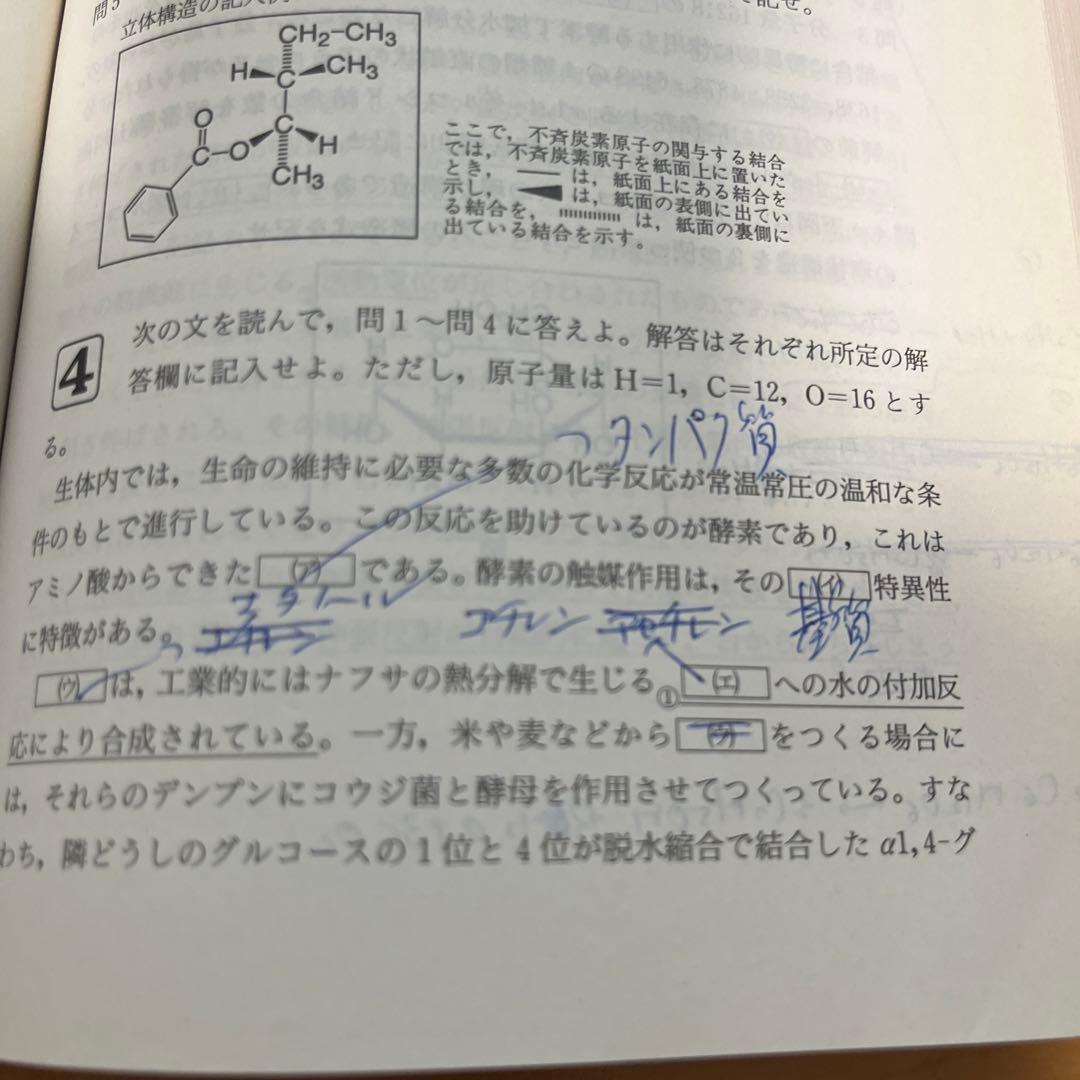 問5
立体構造の記入例
記せ。
CH₂-CH₃
H C CH₃
O C H
C-O
CH₃
ここで，不斉炭素原子の関与する結合
では，不斉炭素原子を紙面上に置いた
とき，──は，紙面上にある結合を
示し， は，紙面の表側に出てい
る結合を， は，紙面の裏側に
出ている結合を示す。
4 次の文を読んで，問1～問4に答えよ。解答はそれぞれ所定の解
答欄に記入せよ。ただし，原子量はH=1，C=12，O=16とす
る。
タンパク質
生体内では，生命の維持に必要な多数の化学反応が常温常圧の温和な条
件のもとで進行している。この反応を助けているのが酵素であり，これは
アミノ酸からできた (ア) である。酵素の触媒作用は，その (イ) 特異性
に特徴がある。
エタノール エチレン 基質
(ウ) は，工業的にはナフサの熱分解で生じる① (エ) への水の付加反
応により合成されている。一方，米や麦などから (ウ) をつくる場合に
は，それらのデンプンにコウジ菌と酵母を作用させてつくっている。すな
わち，隣どうしのグルコースの1位と4位が脱水縮合で結合したα1,4-グ